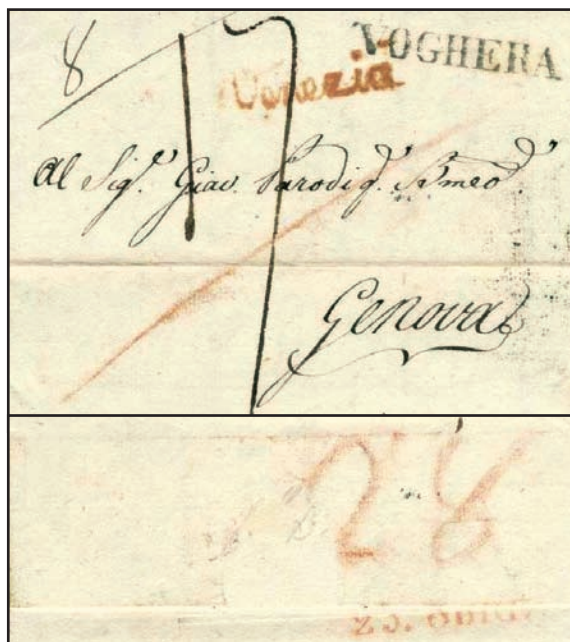 8
17
VOGHERA
Venezia
Al Sig.r Giac. Parodi q.
Genova
28